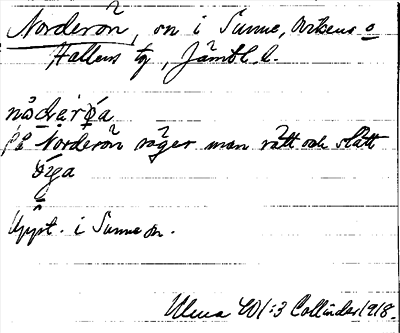 Norderön, ön i Sunne, Orkens o
Hallens tg, Jämtl. l.
På Norderön säger man rätt och slätt
öiga
Uppt. i Sunne sn.
Ulma 401:3 Collinder 1918.